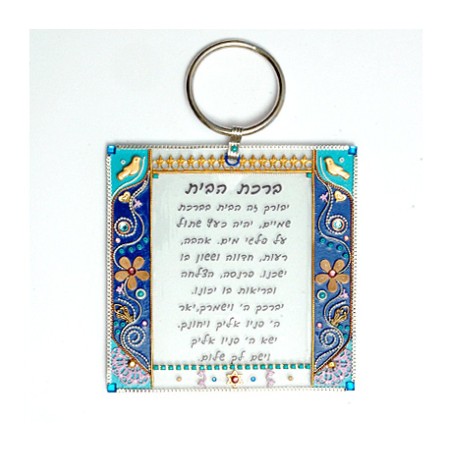 ברכת הבית
יבורך זה הבית בברכת
שמיים, יהיה כעץ שתול
על פלגי מים. אהבה,
רעות, חדווה וששון בו
ישכנו. פרנסה, הצלחה
ובריאות בו יכונו.
יברכך ה' וישמרך, יאר
ה' פניו אליך ויחונך.
ישא ה' פניו אליך
וישם לך שלום.